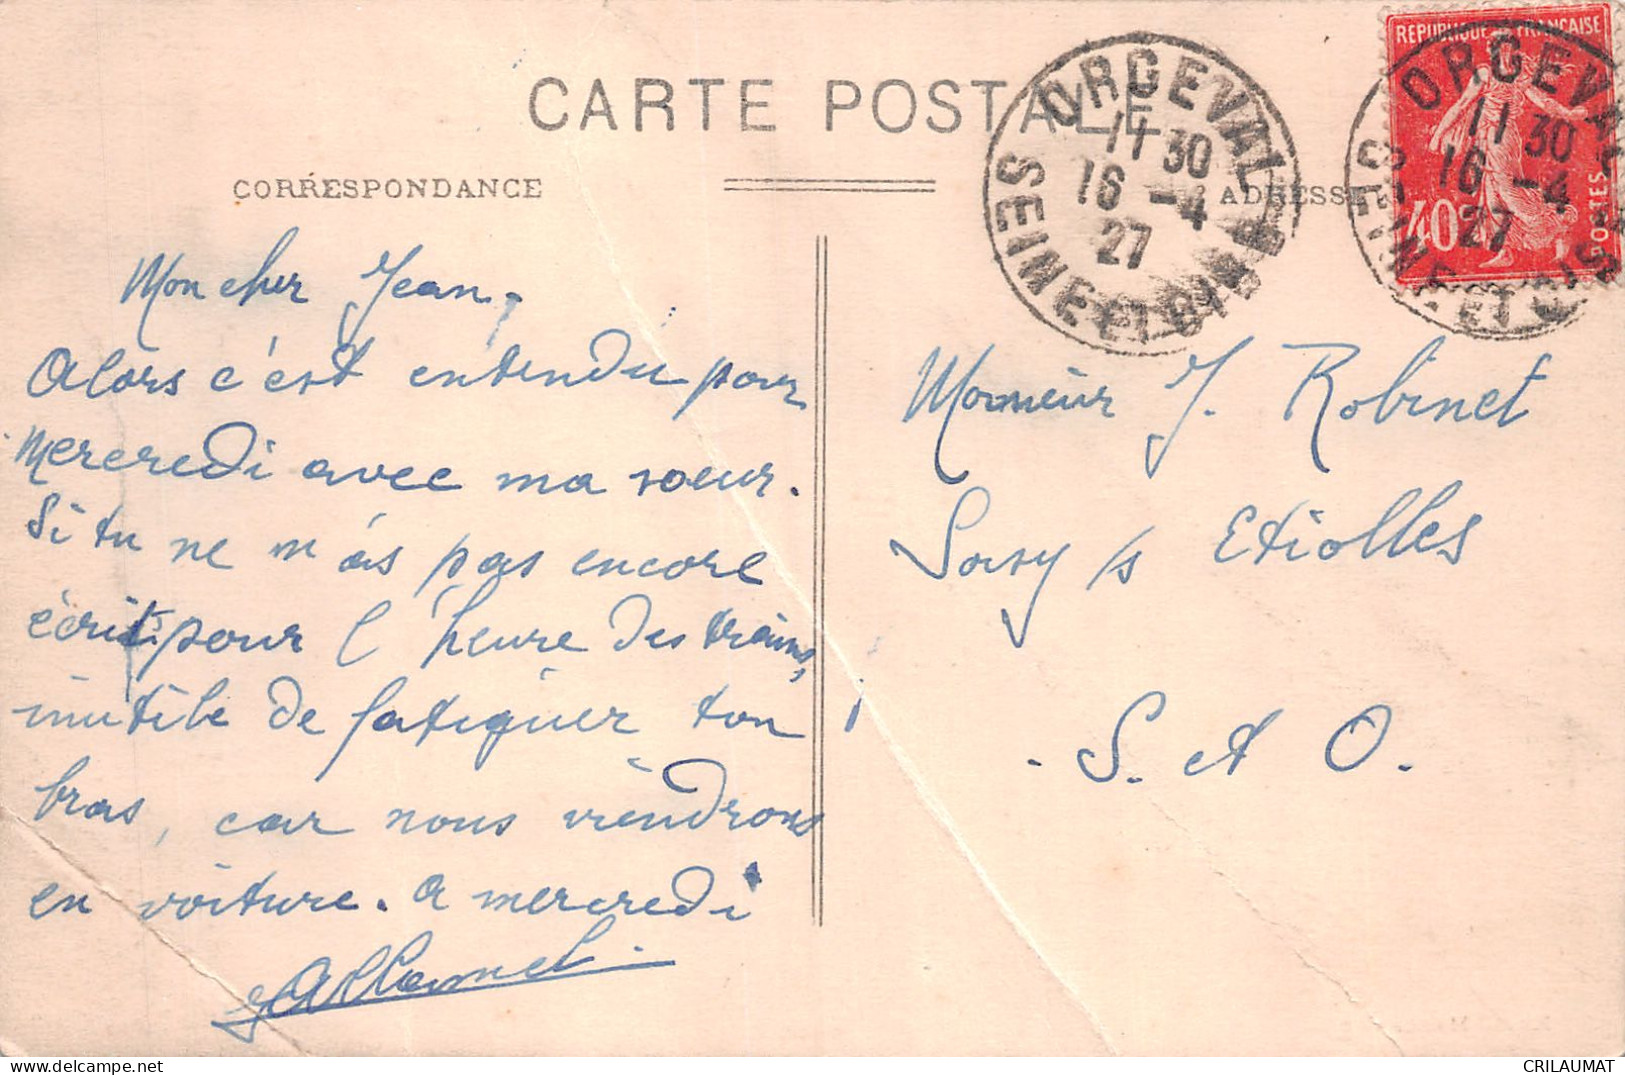 CARTE POSTALE
CORRESPONDANCE
ADRESSE
ORGEVAL
11 30
16 -4
27
SEINE ET OISE
REPUBLIQUE FRANÇAISE
ORGEVAL
11 30
16 -4
27
SEINE ET OISE
40c
POSTES
Mon cher Jean,
Alors c'est entendu pour
mercredi avec ma soeur.
Si tu ne m'as pas encore
écrit pour l'heure des trains,
inutile de fatiguer ton
bras, car nous viendrons
en voiture. A mercredi
Monsieur J. Robinet
Soisy s/s Etiolles
S. et O.
www.delcampe.net
CRILAUMAT